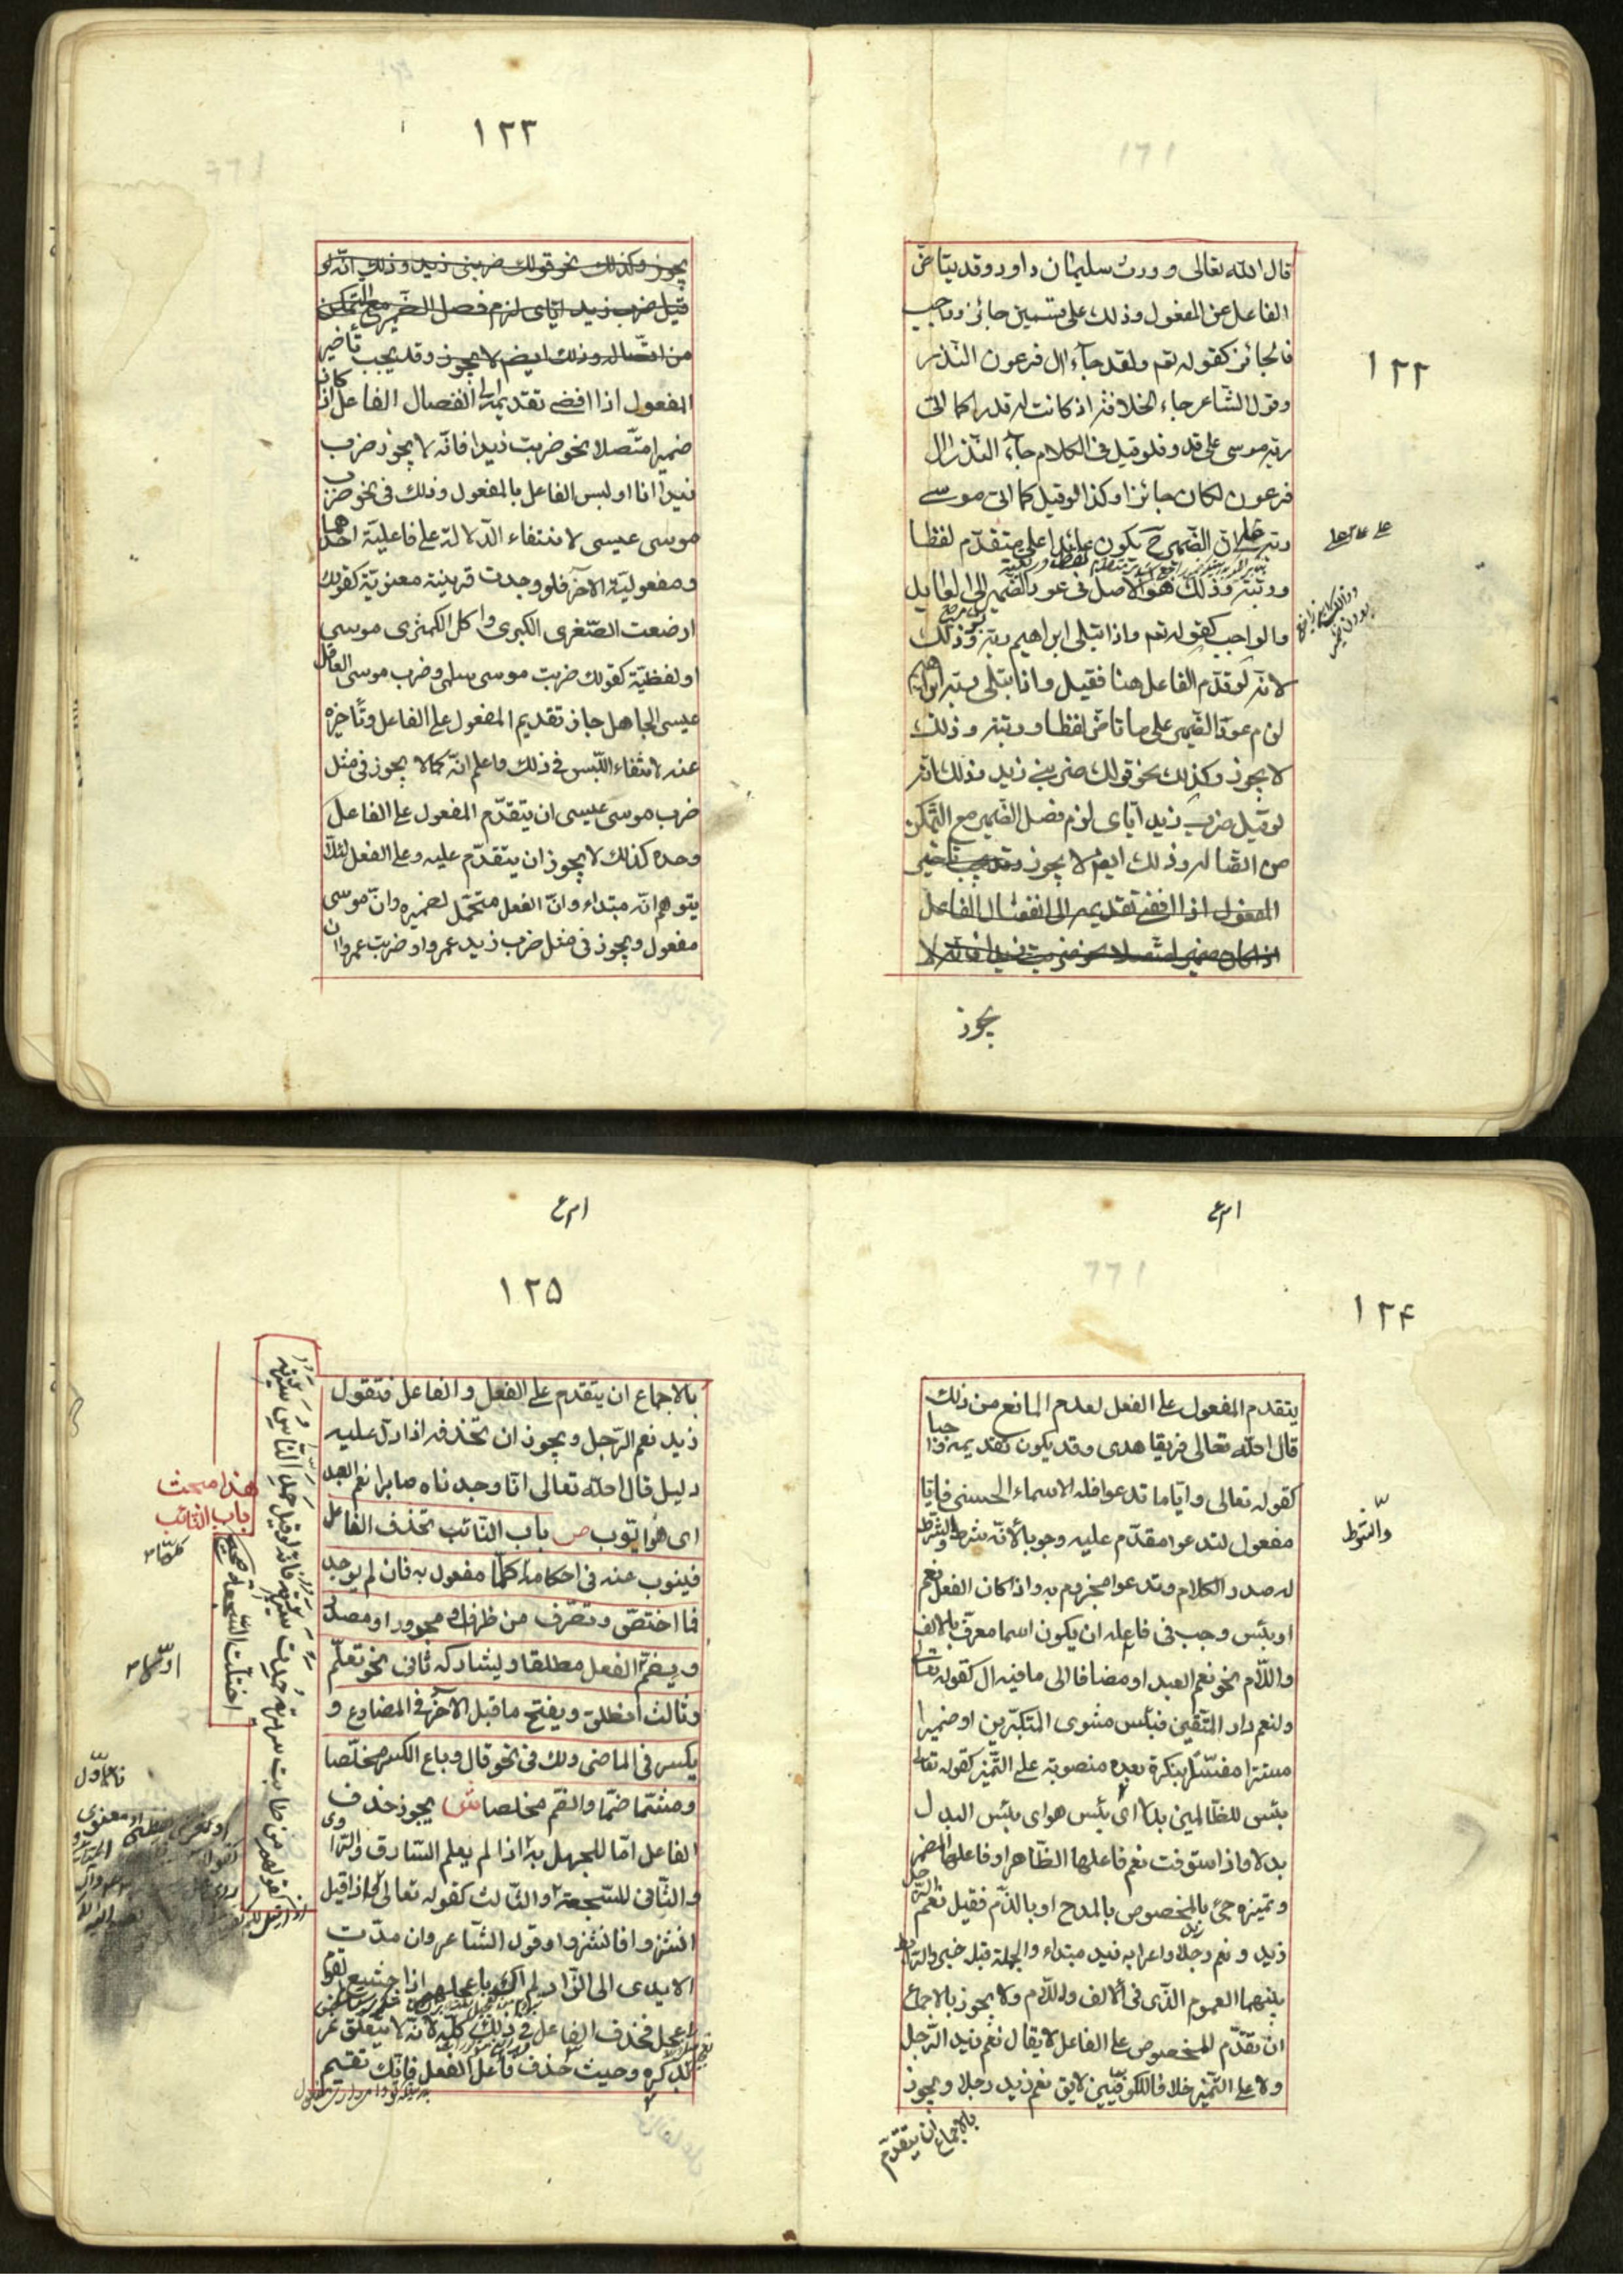 ١٢٢
قال الله تعالى وورث سليمان داود وقد يتأخّر
الفاعل عن المفعول وذلك على قسمين جائز وواجب
فالجائز كقوله تعم ولقد جاء ال فرعون النّذر
وقول الشاعر جاء الخلافة اذ كانت له قدرا كما اتى
ربّه موسى على قدر فلو قيل في الكلام جاء النّذر ال
فرعون لكان جائزا وكذا لو قيل كما اتى موسى
ربّه على ان الضّمير ح يكون عائدا على متقدّم لفظا
ورتبة وذلك هو الاصل في عود الضّمير
والواجب كقوله تعم واذا بتلى ابراهيم ربّه وذلك
لانّه لو قدّم الفاعل هنا فقيل واذا بتلى ربّه ابراهيم
لزم عود الضّمير على ما تاخّر لفظا ورتبة وذلك
لا يجوز وكذلك نحو قولك ضربنى زيد وذلك انّه
لو قيل ضرب زيد ايّاى لزم فصل الضّمير مع التّمكن
من اتّصاله وذلك ايضا لا يجوز وقد يجب تأخير
المفعول اذا افضى تقديمه الى انفصال الفاعل
اذا كان ضميرا متّصلا نحو ضربت زيدا فانّه لا
يجوز
١٢٣
يجوز وكذلك نحو قولك ضربنى زيد وذلك انّه لو
قيل ضرب زيد ايّاى لزم فصل الضّمير مع التّمكن
من اتّصاله وذلك ايضم لا يجوز وقد يجب تأخير
المفعول اذا افضى تقديمه الى انفصال الفاعل اذا كان
ضميرا متّصلا نحو ضربت زيدا فانّه لا يجوز ضرب
زيدا انا او لبس الفاعل بالمفعول وذلك في نحو ضرب
موسى عيسى لانتفاء الدّلالة على فاعليّة احدهما
ومفعوليّة الآخر فلو وجدت قرينة معنويّة كقولك
ارضعت الصّغرى الكبرى واكل الكمثرى موسى
او لفظيّة كقولك ضربت موسى سلمى وضرب موسى العاقل
عيسى الجاهل جاز تقديم المفعول على الفاعل وتأخيره
عنه لانتفاء اللّبس في ذلك واعلم انّه كما لا يجوز في مثل
ضرب موسى عيسى ان يتقدّم المفعول على الفاعل
وحده كذلك لا يجوز ان يتقدّم عليه وعلى الفعل لئلّا
يتوهم انّه مبتداء وانّ الفعل متحمّل لضميره وانّ موسى
مفعول ويجوز في مثل ضرب زيد عمروا وضربت عمروا ان
١٢٤
يتقدم المفعول على الفعل لعدم المانع من ذلك
قال الله تعالى فريقا هدى وقد يكون تقديمه واجبا
كقوله تعالى وايّاما تدعوا فله الاسماء الحسنى فايّا
مفعول لتدعوا مقدّم عليه وجوبا لأنّه شرط والشرط
له صدر الكلام وتدعوا مجزوم به واذا كان الفعل نعم
او بئس وجب في فاعله ان يكون اسما معرّفا بالالف
واللّام نحو نعم العبد او مضافا الى ما فيه ال كقوله تعالى
ولنعم دار المتّقين فبئس مثوى المتكبّرين او ضميرا
مستترا مفسّرا بنكرة بعده منصوبة على التّميز كقوله تعالى
بئس للظّالمين بدلا اى بئس هو اى بئس البدل
بدلا واذا استوفت نعم فاعلها الظّاهر او فاعلها المضمر
وتميزه جئ بالمخصوص بالمدح او بالذّم فقيل نعم الرّجل
زيد ونعم رجلا زيد واعرابه زيد مبتداء والجملة قبله خبر والرّابط
بينهما العموم الذّى في الالف واللّام ولا يجوز بالاجماع
ان تقدّم المخصوص على الفاعل لا يقال نعم زيد الرّجل
ولا على التّميز خلافا للكوفيّين لايق نعم زيد رجلا ويجوز
بالاجماع ان يتقدّم
١٢٥
بالاجماع ان يتقدم على الفعل والفاعل فتقول
زيد نعم الرّجل ويجوز ان تحذفه اذا دلّ عليه
دليل قال الله تعالى انّا وجدناه صابرا نعم العبد
اى هو ايّوب ص باب النّائب تحذف الفاعل
فينوب عنه في احكامه كلّها مفعول به فان لم يوجد
فما اختصّ وتصرّف من ظرف او مجرور او مصدر
ويضمّ الفعل مطلقا ويشاركه ثانى نحو تعلّم
وثالث انطلق ويفتح ما قبل الآخر في المضارع و
يكسر في الماضى ولك في نحو قال وباع الكسر مخلّصا
ومشمّا ضمّا والضّم مخلصا ش يجوز حذف
الفاعل امّا للجهل به اذا لم يعلم السّارق والرّاوى
والثّانى للسّجعة والثّالث كقوله تعالى اذا قيل
انشزوا فانشزوا وقول الشّاعر وان مدّت
الايدى الى الزّاد لم اكن باعجلهم اذا جشع القوم
اعجل فحذف الفاعل في ذلك كلّه لأنّه لا يتعلّق غرض
بذكره وحيث حذف فاعل الفعل فانّك تقيم
هذا مبحث
باب النّائب